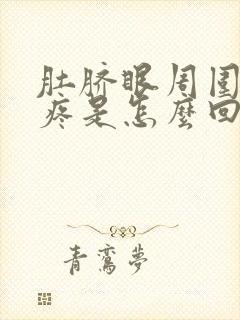 肚脐眼周围
疼是怎麽回
青鸾夢